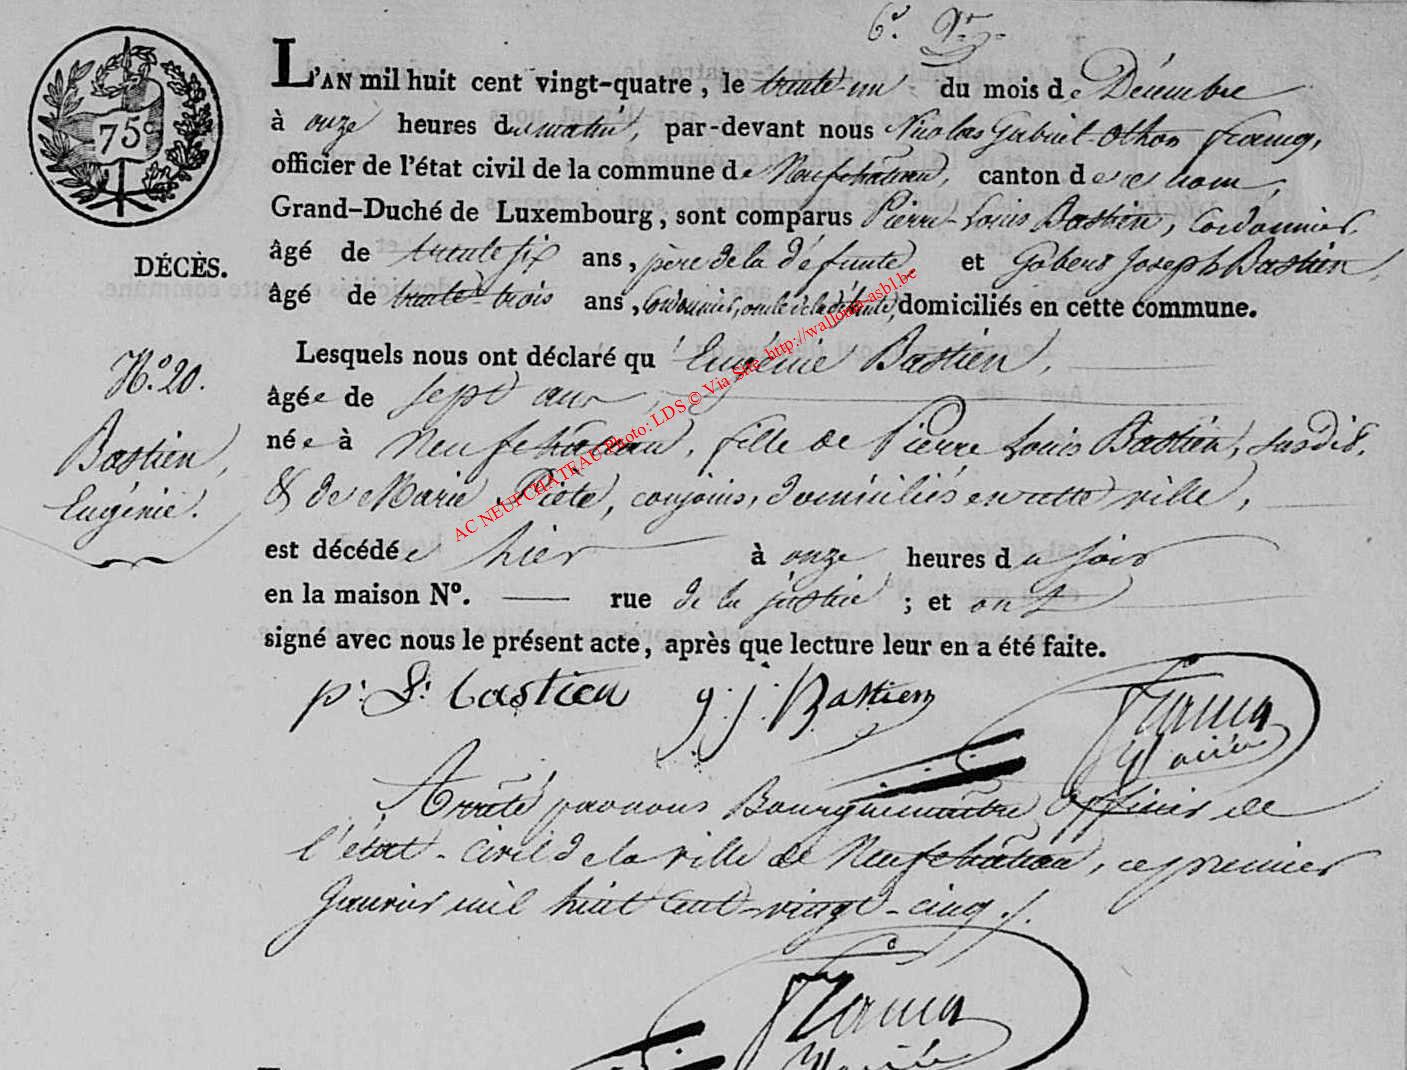 6e
75c
L'AN mil huit cent vingt-quatre, le trente-un du mois de Décembre
à onze heures du matin, par-devant nous Nicolas Gabriel Othon Francq,
officier de l'état civil de la commune de Neufchâteau, canton de ce nom,
Grand-Duché de Luxembourg, sont comparus Pierre-Louis Bastien, Cordonnier,
DÉCÈS.
âgé de trente six ans, père de la défunte et Gobert Joseph Bastien,
âgé de trente trois ans, Cordonnier, oncle de la défunte, domiciliés en cette commune.
N.o 20.
Bastien,
Eugénie.
Lesquels nous ont déclaré qu'Eugénie Bastien,
âgée de sept ans,
née à Neufchâteau, fille de Pierre Louis Bastien, susdit,
& de Marie Piète, conjoins, domiciliés en cette ville,
est décédée hier à onze heures du soir
en la maison No. — rue de la justice ; et ont
signé avec nous le présent acte, après que lecture leur en a été faite.
p: L: bastien g: j: Bastien
Arrêté par nous Bourguemaître officier de
l'état-civil de la ville de Neufchâteau, ce premier
Janvier mil huit cent-vingt-cinq./.
AC NEUFCHATEAU Photo: LDS © Via Site http://wallonia-asbl.be